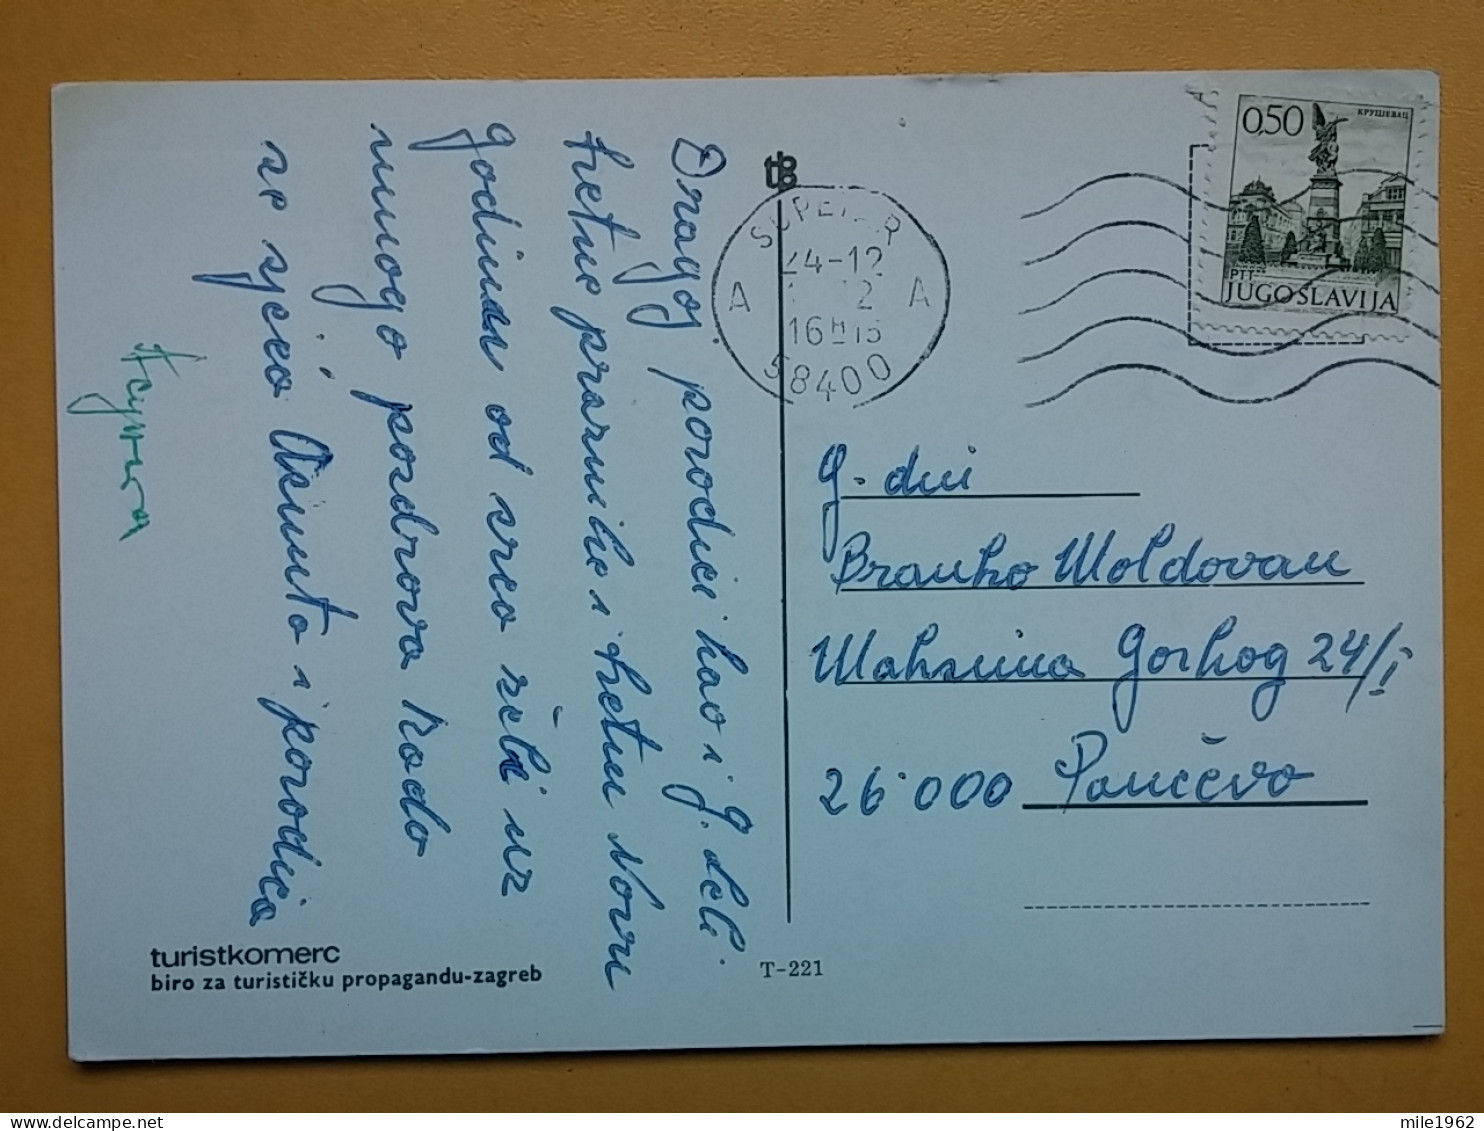 Dragoj porodici kao i g. deli.
sretne praznike i sretnu Novu
godinu od srca želi uz
mnogo pozdrava kado
se sjeća Asunta i porodica
turistkomerc
biro za turističku propagandu-zagreb
T-221
SUPETAR
24-12
12
16h-15
A A
58400
0,50
КРУШЕВАЦ
PTT
JUGOSLAVIJA
G. din
Branko Moldovan
Maksima Gorkog 24/I
26000 Pančevo
mile1962